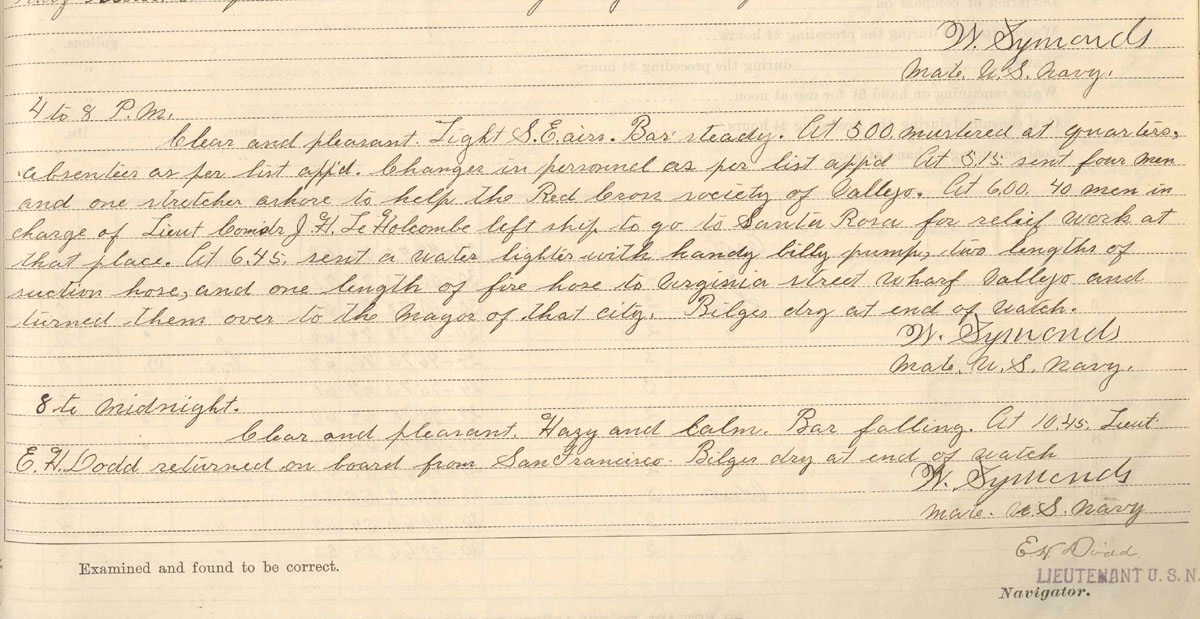 W. Symonds
Mate. U.S. Navy.
4 to 8 P.M.
Clear and pleasant. Light S.E. airs. Bar steady. At 5.00 mustered at quarters,
absentees as per list app'd. Changes in personnel as per list app'd At 5.15 sent four men
and one stretcher ashore to help the Red Cross society of Vallejo. At 6.00, 40 men in
charge of Lieut Comdr J. H. L. Holcombe left ship to go to Santa Rosa for relief work at
that place. At 6.45, sent a water lighter with handy billy pump, two lengths of
suction hose, and one length of fire hose to Virginia street wharf Vallejo and
turned them over to the Mayor of that city. Bilges dry at end of watch.
W. Symonds
Mate. U.S. Navy.
8 to Midnight.
Clear and pleasant. Hazy and Calm. Bar falling. At 10.45. Lieut
E. H. Dodd returned on board from San Francisco. Bilges dry at end of watch
W. Symonds
Mate. U.S. Navy
E H Dodd
LIEUTENANT U.S.N.
Examined and found to be correct.
Navigator.